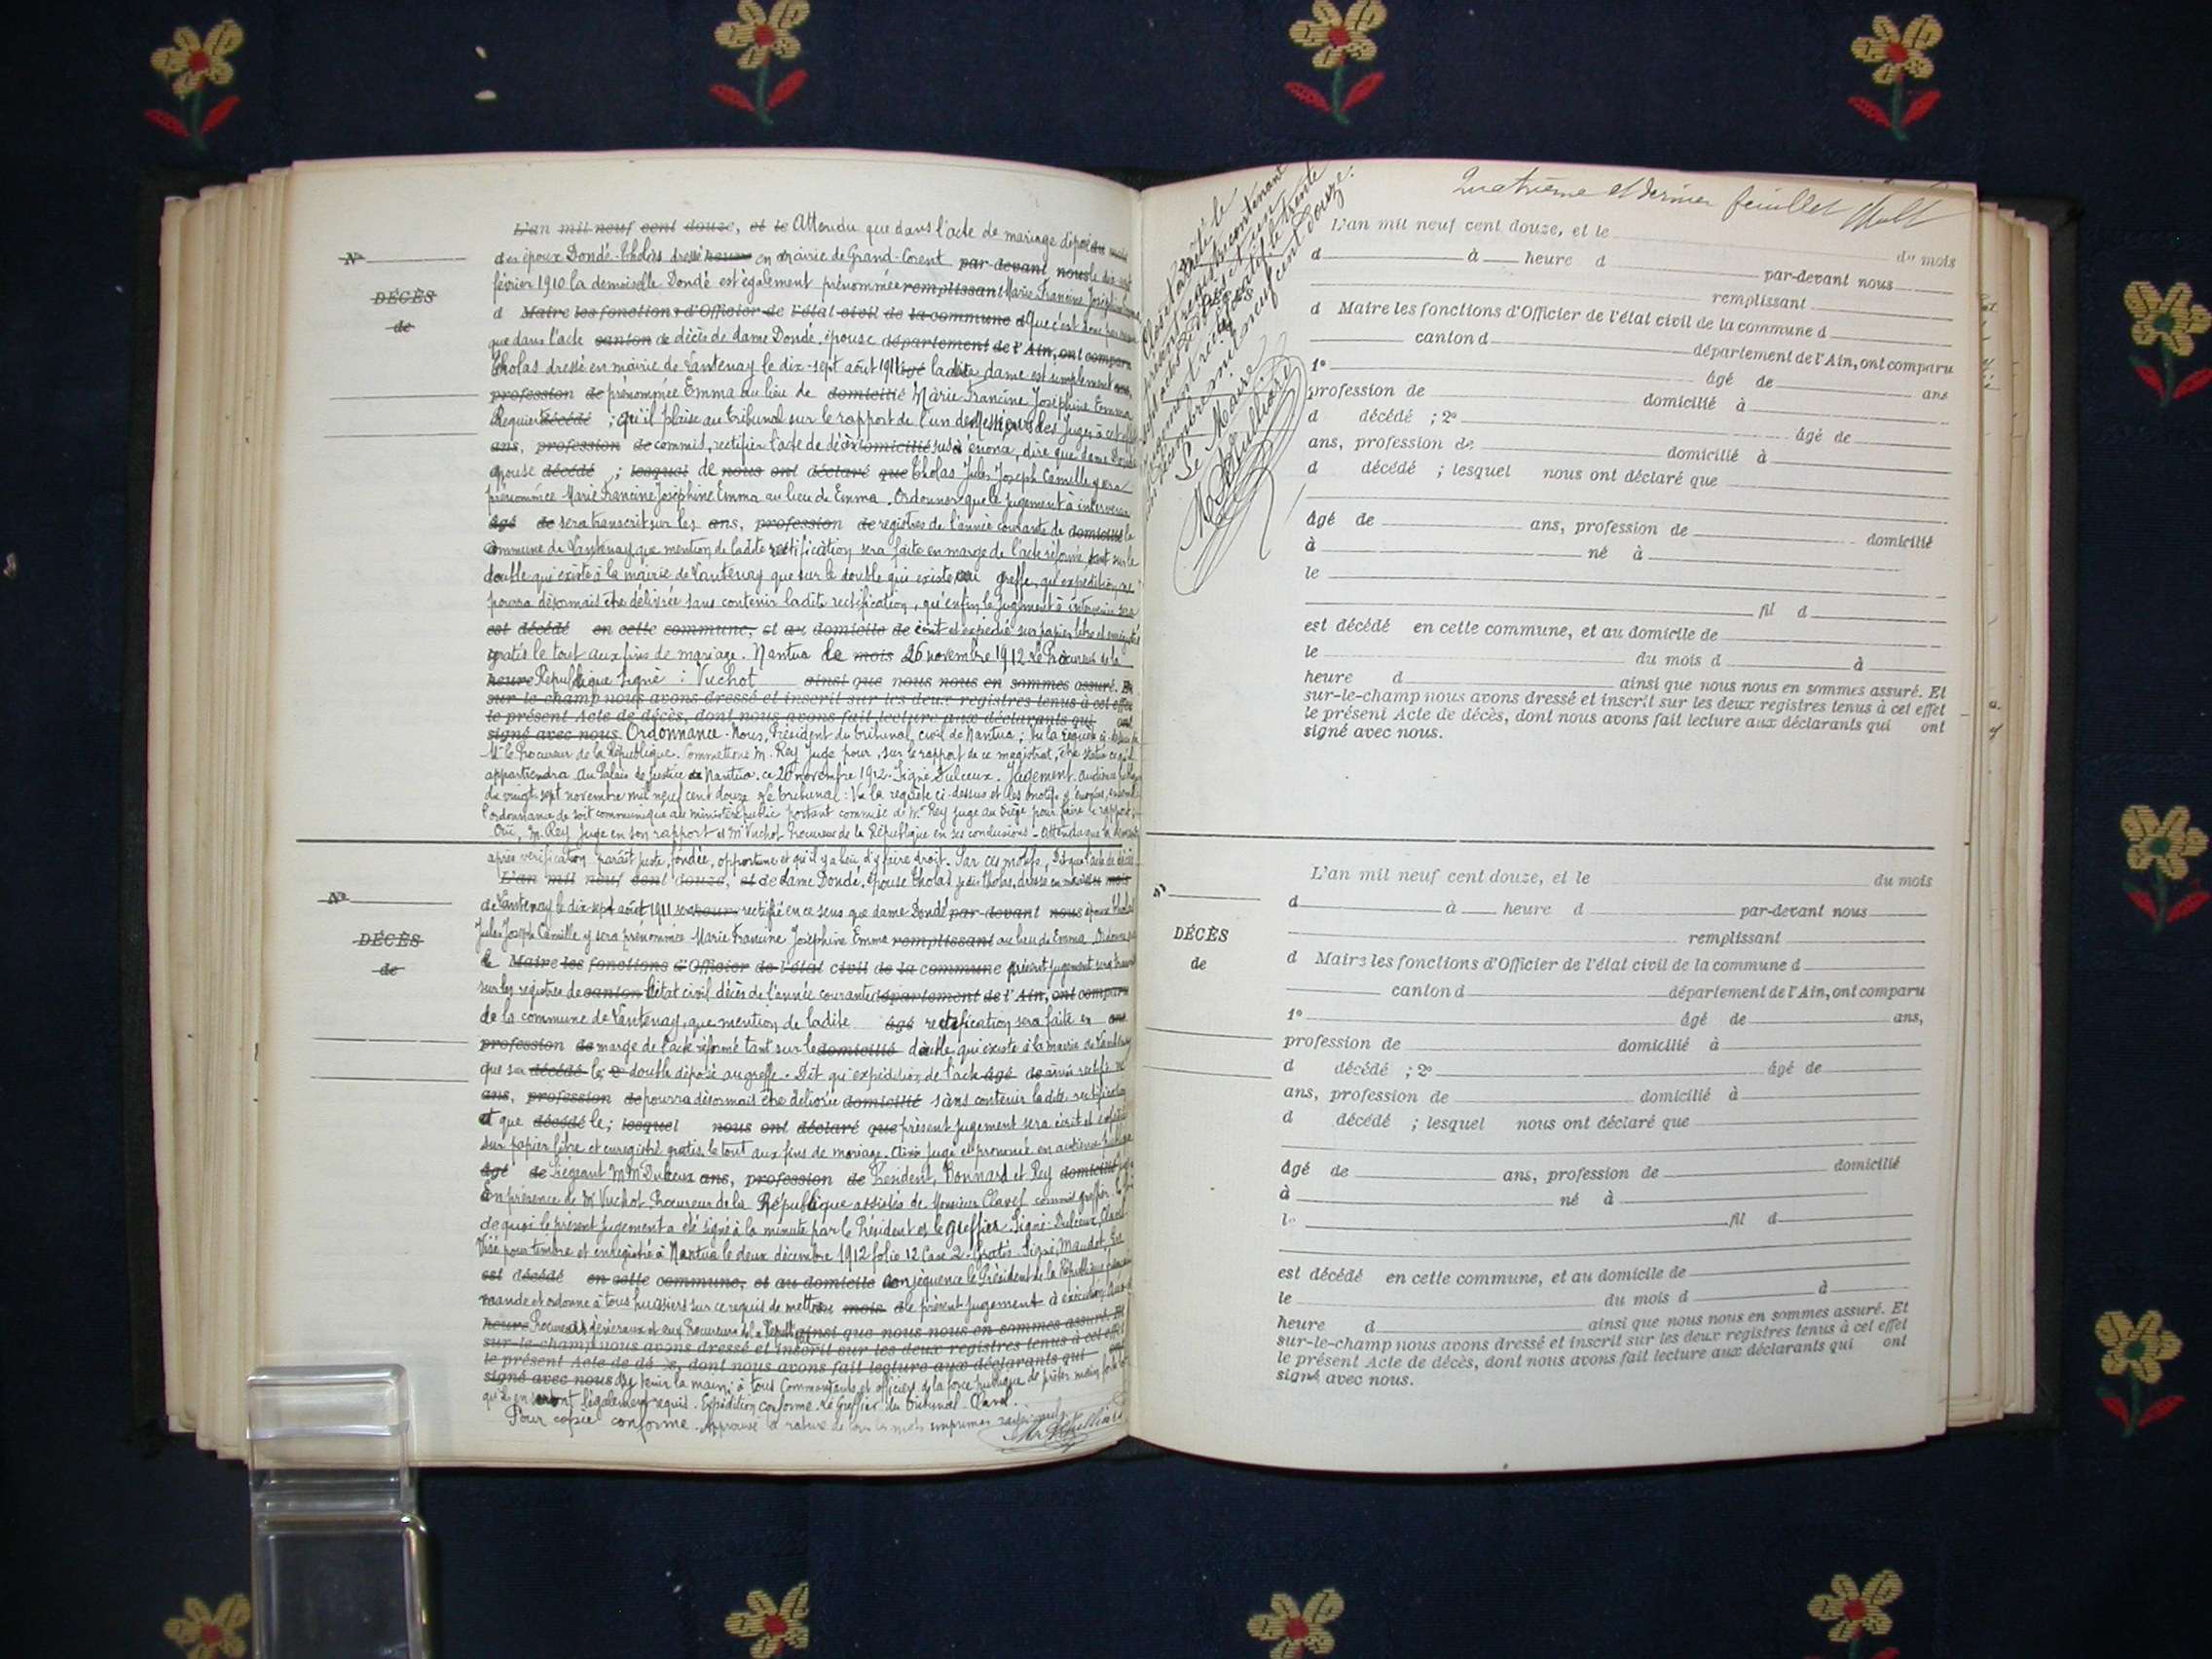 L'an mil neuf cent douze, et le Attendu que dans l'acte de mariage déposé du mois
Nº
des époux Dondé-Tholas dressé heure en mairie de Grand-Corent par-devant nous le dix-sept
DÉCÈS
février 1910 la demoiselle Dondé est également prénommée remplissant Marie Francine Joséphine
de
d Maire les fonctions d'Officier de l'état civil de la commune d Que c'est donc par erreur
que dans l'acte canton de décès de dame Dondé, épouse département de l'Ain, ont comparu
Tholas dressé en mairie de Lantenay le dix-sept août 1911 âgé ladite dame est simplement ans,
profession de prénommée Emma au lieu de domicilié Marie Francine Joséphine Emma
Requier décédé ; qu'il plaise au tribunal sur le rapport de l'un de Messieurs les Juges à cet effet
ans, profession de commis, rectifier l'acte de décès domicilié sus à énoncé, dire que dame Dondé
épouse décédé ; lesquel de nous ont déclaré que Tholas Jules Joseph Camille y sera
prénommée Marie Francine Joséphine Emma au lieu de Emma. Ordonner que le jugement à intervenir
âgé de sera transcrit sur les ans, profession de registres de l'année courante de domicilié la
commune de Lantenay, que mention de ladite rectification sera faite en marge de l'acte réformé tant sur le
double qui existe à la mairie de Lantenay que sur le double qui existe au greffe, qu'expédition ne
pourra désormais être délivrée sans contenir ladite rectification, qu'enfin le jugement à intervenir sera
est décédé en cette commune, et au domicile de écrit et expédié sur papier libre et enregistré
gratis le tout aux fins de mariage. Nantua le mois 26 novembre 1912 Le Procureur de la
heure République Signé : Vuchot ainsi que nous nous en sommes assuré. Et
sur-le-champ nous avons dressé et inscrit sur les deux registres tenus à cet effet
le présent Acte de décès, dont nous avons fait lecture aux déclarants qui ont
signé avec nous. Ordonnance - Nous, Président du tribunal civil de Nantua ; Vu la requête ci-dessus de
Mr le Procureur de la République. Commettons M. Rey Juge pour, sur le rapport de ce magistrat, être statué ce qu'il
appartiendra. Au Palais de Justice de Nantua, ce 26 novembre 1912. Signé Dulceux. Jugement. Audience publique
du vingt sept novembre mil neuf cent douze. Le tribunal : Vu la requête ci-dessus et les motifs y énoncés, ensemble
l'ordonnance de soit communiqué au ministère public portant commise de Mr Rey Juge au Siège pour faire le rapport ;
Ouï, M. Rey Juge en son rapport et Mr Vuchot Procureur de la République en ses conclusions - Attendu que la demande
après vérification paraît juste, fondée, opportune et qu'il y a lieu d'y faire droit. Par ces motifs, Dit que l'acte de décès
L'an mil neuf cent douze, et de dame Dondé, épouse Tholas dressé en mairie du mois
Nº
de Lantenay le dix-sept août 1911 sera heure rectifié en ce sens que dame Dondé par-devant nous épouse Tholas
DÉCÈS
Jules Joseph Camille y sera prénommée Marie Francine Joséphine Emma remplissant au lieu de Emma. Ordonne que
de
le Maire les fonctions d'Officier de l'état civil de la commune présent jugement sera transcrit
sur les registres de canton l'état civil décès de l'année courante département de l'Ain, ont comparu
de la commune de Lantenay, que mention de ladite âgé rectification sera faite en ans
profession de marge de l'acte réformé tant sur le domicilié double qui existe à la mairie de Lantenay
que sur décédé le ; 2º double déposé au greffe. Dit qu'expédition de l'acte âgé de ainsi rectifié ne
ans, profession de pourra désormais être délivrée domicilié sans contenir ladite rectification
et que décédé le ; lesquel nous ont déclaré que présent jugement sera écrit et expédié
sur papier libre et enregistré gratis le tout aux fins de mariage. Ainsi jugé et prononcé en audience publique
âgé de Siégeant MM Dulceux ans, profession de Président, Bonnard et Rey domicilié juges
En présence de Mr Vuchot Procureur de la République assistés de Monsieur Clavel commis greffier. En foi
de quoi le présent jugement a été signé à la minute par le Président et le Greffier. Signé : Dulceux, Clavel
Visé pour timbre et enregistré à Nantua le deux décembre 1912 folio 12 Case 2. Gratis. Signé, Maudot, En
est décédé en cette commune, et au domicile conséquence le Président de la République française
mande et ordonne à tous huissiers sur ce requis de mettre mois d le présent jugement à exécution Aux
heure Procureurs généraux et aux Procureurs de la République ainsi que nous nous en sommes assuré. Et
sur-le-champ nous avons dressé et inscrit sur les deux registres tenus à cet effet
le présent Acte de dé s, dont nous avons fait lecture aux déclarants qui ont
signé avec nous d'y tenir la main, à tous Commandants et officiers de la force publique de prêter main forte lors
qu'ils en seront légalement requis. Expédition conforme. Le Greffier du tribunal Clavel.
Pour copie conforme. Approuvé la rature de tous les mots imprimés
Quatrième et dernier feuillet
Clos et arrêté le
présent registre contenant
sept actes de décès et un
jugement rectificatif le trente
un décembre mil neuf cent douze.
Le Maire
L'an mil neuf cent douze, et le du mois
d à heure d par-devant nous
remplissant
d Maire les fonctions d'Officier de l'état civil de la commune d
canton d département de l'Ain, ont comparu
1º âgé de ans
profession de domicilié à
d décédé ; 2º âgé de
ans, profession de domicilié à
d décédé ; lesquel nous ont déclaré que
âgé de ans, profession de domicilié
à né à
le
fil d
est décédé en cette commune, et au domicile de
le du mois d à
heure d ainsi que nous nous en sommes assuré. Et
sur-le-champ nous avons dressé et inscrit sur les deux registres tenus à cet effet
le présent Acte de décès, dont nous avons fait lecture aux déclarants qui ont
signé avec nous.
L'an mil neuf cent douze, et le du mois
Nº
d à heure d par-devant nous
DÉCÈS
remplissant
de
d Maire les fonctions d'Officier de l'état civil de la commune d
canton d département de l'Ain, ont comparu
1º âgé de ans,
profession de domicilié à
d décédé ; 2º âgé de
ans, profession de domicilié à
d décédé ; lesquel nous ont déclaré que
âgé de ans, profession de domicilié
à né à
le fil d
est décédé en cette commune, et au domicile de
le du mois d à
heure d ainsi que nous nous en sommes assuré. Et
sur-le-champ nous avons dressé et inscrit sur les deux registres tenus à cet effet
le présent Acte de décès, dont nous avons fait lecture aux déclarants qui ont
signé avec nous.